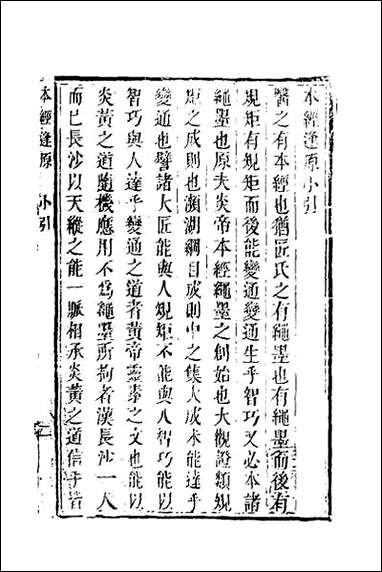 本經逢原小引
醫之有本經也猶匠氏之有繩墨也有繩墨而後有
規矩有規矩而後能變通變通生乎智巧又必本諸
繩墨也原夫炎帝本經繩墨之創始也大觀證類規
矩之成則也瀕湖綱目成則中之集大成未能達乎
變通也譬諸大匠能與人規矩不能與人智巧能以
智巧與人達乎變通之道者黄帝靈素之文也能以
炎黄之道隨機應用不爲繩墨所拘者漢長沙一人
而巳長沙以天縱之能一脈相承炎黄之道信手皆
本經逢原 小引 一